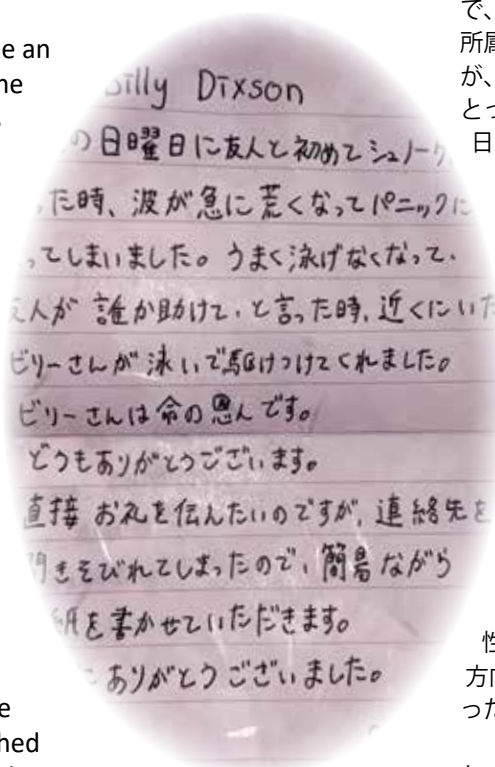 e an
で、
所属
が、
とっ
日
Billy Dixson
の日曜日に友人と初めてシュノーケ
った時、波が急に荒くなってパニックに
ってしまいました。うまく泳げなくなって、
友人が 誰か助けて、と言った時、近くにいた
ビリーさんが泳いで駆けつけてくれました。
ビリーさんは命の恩人です。
どうもありがとうございます。
直接 お礼を伝えたいのですが、連絡先を
聞きそびれてしまったので、簡易ながら
紙を書かせていただきます。
にありがとうございました。
性
方向
った
e
ched